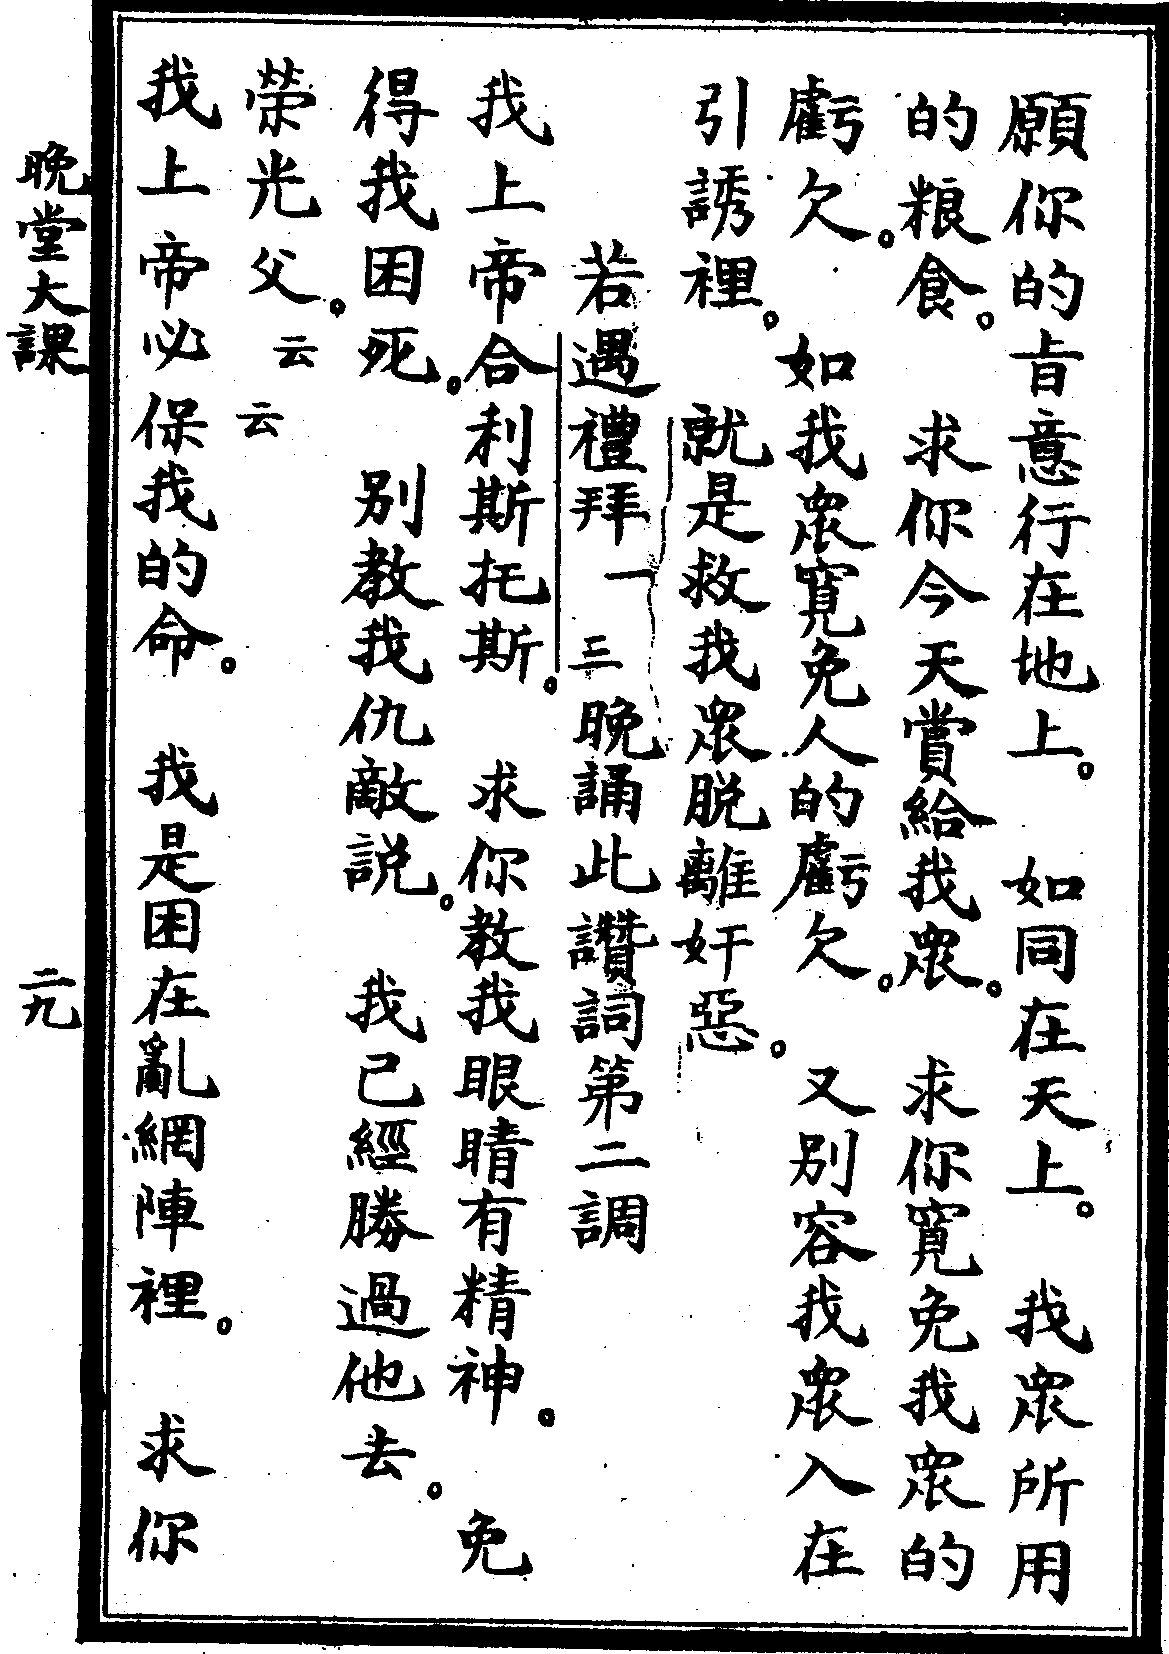 願你的旨意行在地上。如同在天上。我眾所用
的粮食。求你今天賞給我眾。求你寬免我眾的
虧欠。如我眾寬免人的虧欠。又别容我眾入在
引誘裡。就是救我眾脱離奸惡。
若遇禮拜一三晚誦此讚詞第二調
我上帝合利斯托斯。求你教我眼睛有精神。免
得我困死。别教我仇敵説。我已經勝過他去。
榮光父。云云
我上帝必保我的命。我是困在亂網陣裡。求你
晚堂大課
二九